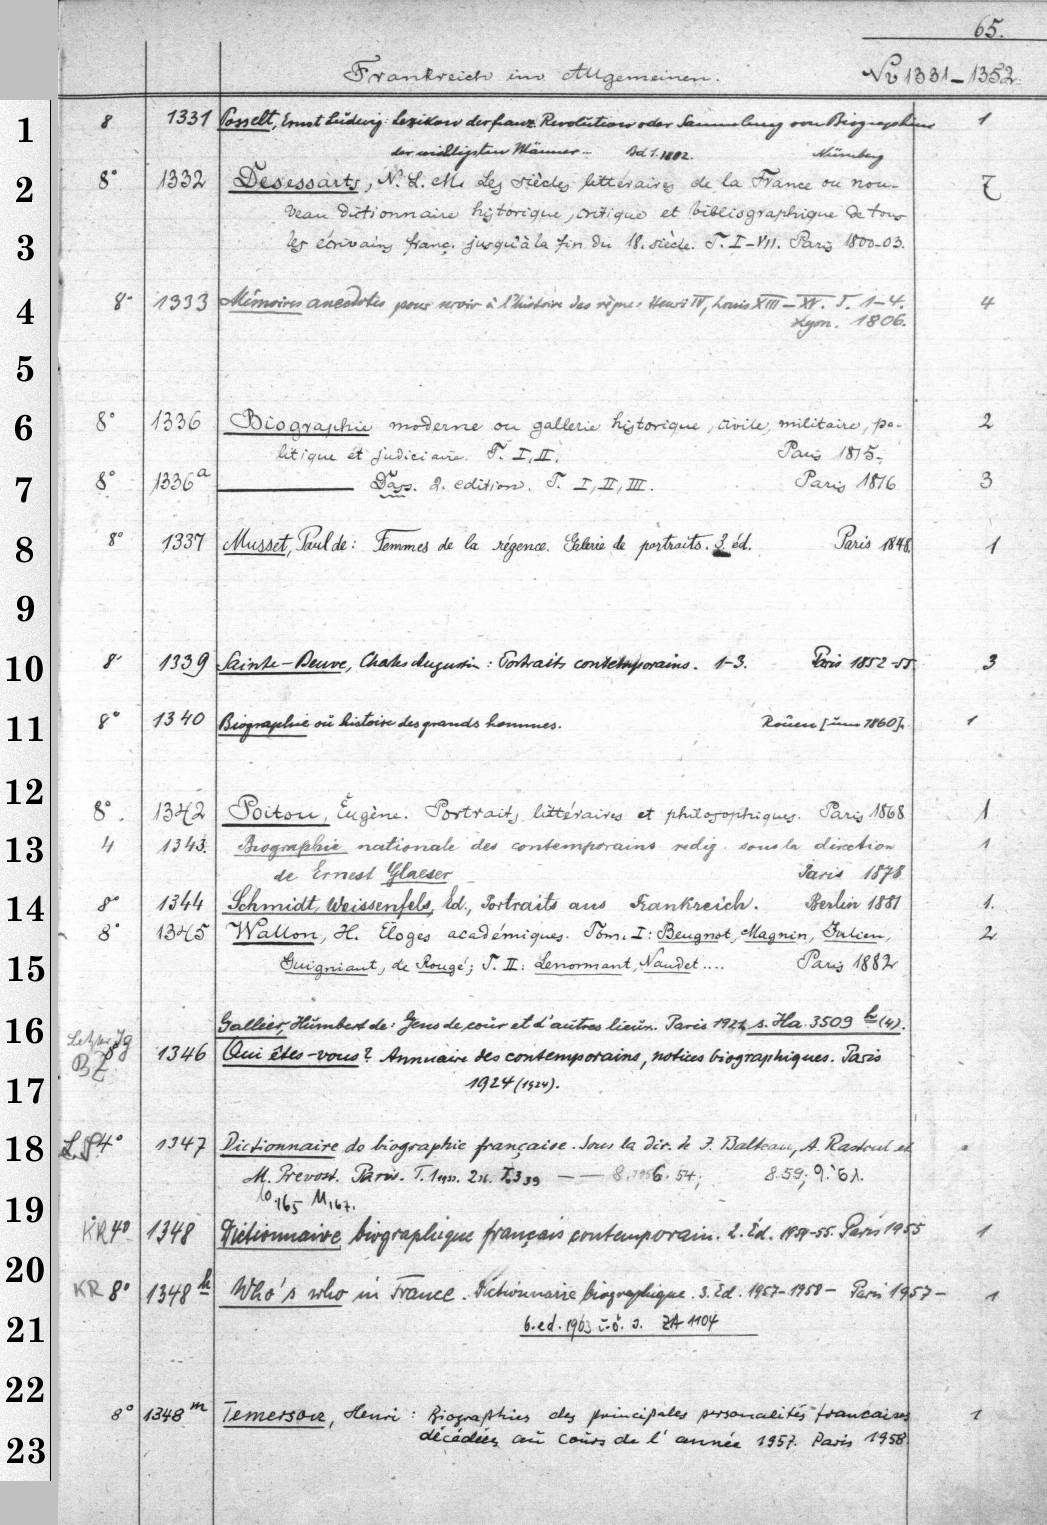 65.
Frankreich im Allgemeinen. No 1331-1352
1
8 1331 Posselt, Ernst Ludwig: Lexikon der franz. Revolution oder Sammlung von Biographien 1
der wichtigsten Männer... Bd 1. 1802. Nürnberg
2
8° 1332 Desessarts, N. L. M. Les siècles littéraires de la France ou nou- 7
veau dictionnaire historique, critique et bibliographique de tous
3
les écrivains franç. jusqu'à la fin du 18. siècle. T. I-VII. Paris 1800-03.
4
8° 1333 Mémoires anecdotes pour servir à l'histoire des règnes Henri IV, Louis XIII-XV. T. 1-4. 4
Lyon. 1806.
5
6
8° 1336 Biographie moderne ou gallerie historique, civile, militaire, po- 2
litique et judiciaire. T. I, II. Paris 1815.
7
8° 1336a Dass. 2. edition. T. I, II, III. Paris 1816 3
8
8° 1337 Musset, Paul de: Femmes de la régence. Galerie de portraits. 3 éd. Paris 1848. 1
9
10
8° 1339 Sainte-Beuve, Charles Augustin: Portraits contemporains. 1-3. Paris 1852-55. 3
11
8° 1340 Biographie oû histoire des grands hommes. Roûen [um 1860]. 1
12
8°. 1342 Poitou, Eugène. Portraits littéraires et philosophiques. Paris 1868 1
13
4 1343. Biographie nationale des contemporains redig. sous la direction 1
de Ernest Glaeser Paris 1878
14
8° 1344 Schmidt-Weissenfels, Ed., Portraits aus Frankreich. Berlin 1881 1.
8° 1345 Wallon, H. Eloges académiques. Tom. I: Beugnot, Magnin, Julien, 2
15
Guigniaut, de Rougé; T. II: Lenormant, Naudet.... Paris 1882
16
Gallier, Humbert de: Gens de coûr et d'aûtres lieûx. Paris 1921 s. Ha 3509 h (4).
Letzter Jg
BZ 8° 1346 Qui êtes-vous? Annuaire des contemporains, notices biographiques. Paris
17
1924 (1924).
18
L.S. 4° 1347 Dictionnaire de biographie française. Sous la dir. de J. Balteau, A. Rastoul et
M. Prevost. Paris. T. 1 1933. 2 36. T. 3 39 — — 8. 1956. 54; 8.59; 9. 61.
19
10 165 11 167.
KR 4° 1348 Dictionnaire biographique français contemporain. 2. Éd. 1954-55. Paris 1955 1
20
KR 8° 1348 h Who's who in France. Dictionnaire biographique. 3. Ed. 1957-1958 - Paris 1957 - 1
21
6. ed. 1963 u.ö. s. ZA 1104
22
8° 1348 m Temerson, Henri: Biographies des principales personalités francaises 1
23
décédées aû coûrs de l'année 1957. Paris 1958.